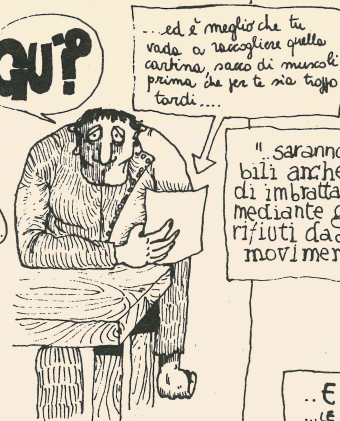 QU'?
...ed è meglio che tu
vada a raccogliere quella
cartina, sacco di muscoli
prima che per te sia troppo
tardi....
".. saranno
bili anche
di imbratta
mediante g
rifiuti da
movimen
..E
...LE